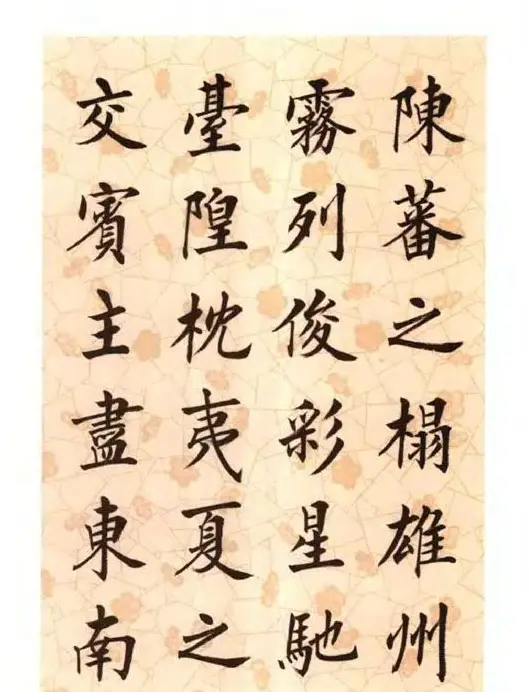 陳蕃之榻雄州
霧列俊彩星馳
臺隍枕夷夏之
交賓主盡東南